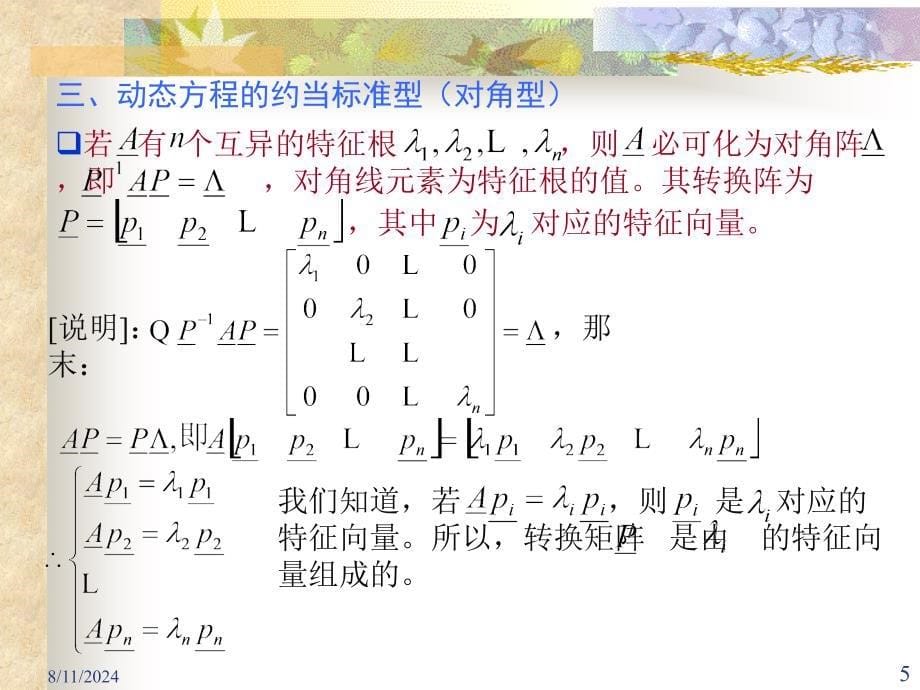 三、动态方程的约当标准型（对角型）
❑若 A 有 n 个互异的特征根 λ₁,λ₂,L ,λₙ，则 A 必可化为对角阵 Λ
，即 P⁻¹AP = Λ ，对角线元素为特征根的值。其转换阵为
P = ⌊p₁ p₂ L pₙ⌋，其中 pᵢ 为 λᵢ 对应的特征向量。
[说明]：Q P⁻¹AP = [λ₁ 0 L 0
0 λ₂ L 0
L L
0 0 L λₙ] = Λ ，那
末：
AP = PΛ,即A⌊p₁ p₂ L pₙ⌋=⌊λ₁p₁ λ₂p₂ L λₙpₙ⌋
∴ { Ap₁ = λ₁p₁
Ap₂ = λ₂p₂
L
Apₙ = λₙpₙ
我们知道，若 Apᵢ = λᵢpᵢ，则 pᵢ 是 λᵢ 对应的
特征向量。所以，转换矩阵 P 是由 λᵢ 的特征向
量组成的。
8/11/2024
5